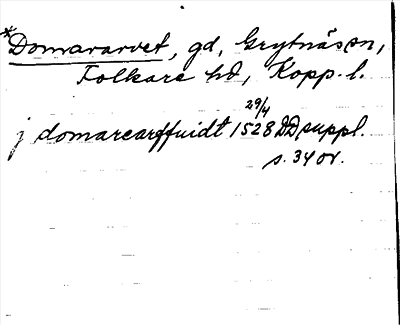 *Domararvet, gd, Grytnäs sn,
Folkare hd, Kopp. l.
j domarearffuidt 1528 29/4 DD suppl.
s. 34 or.